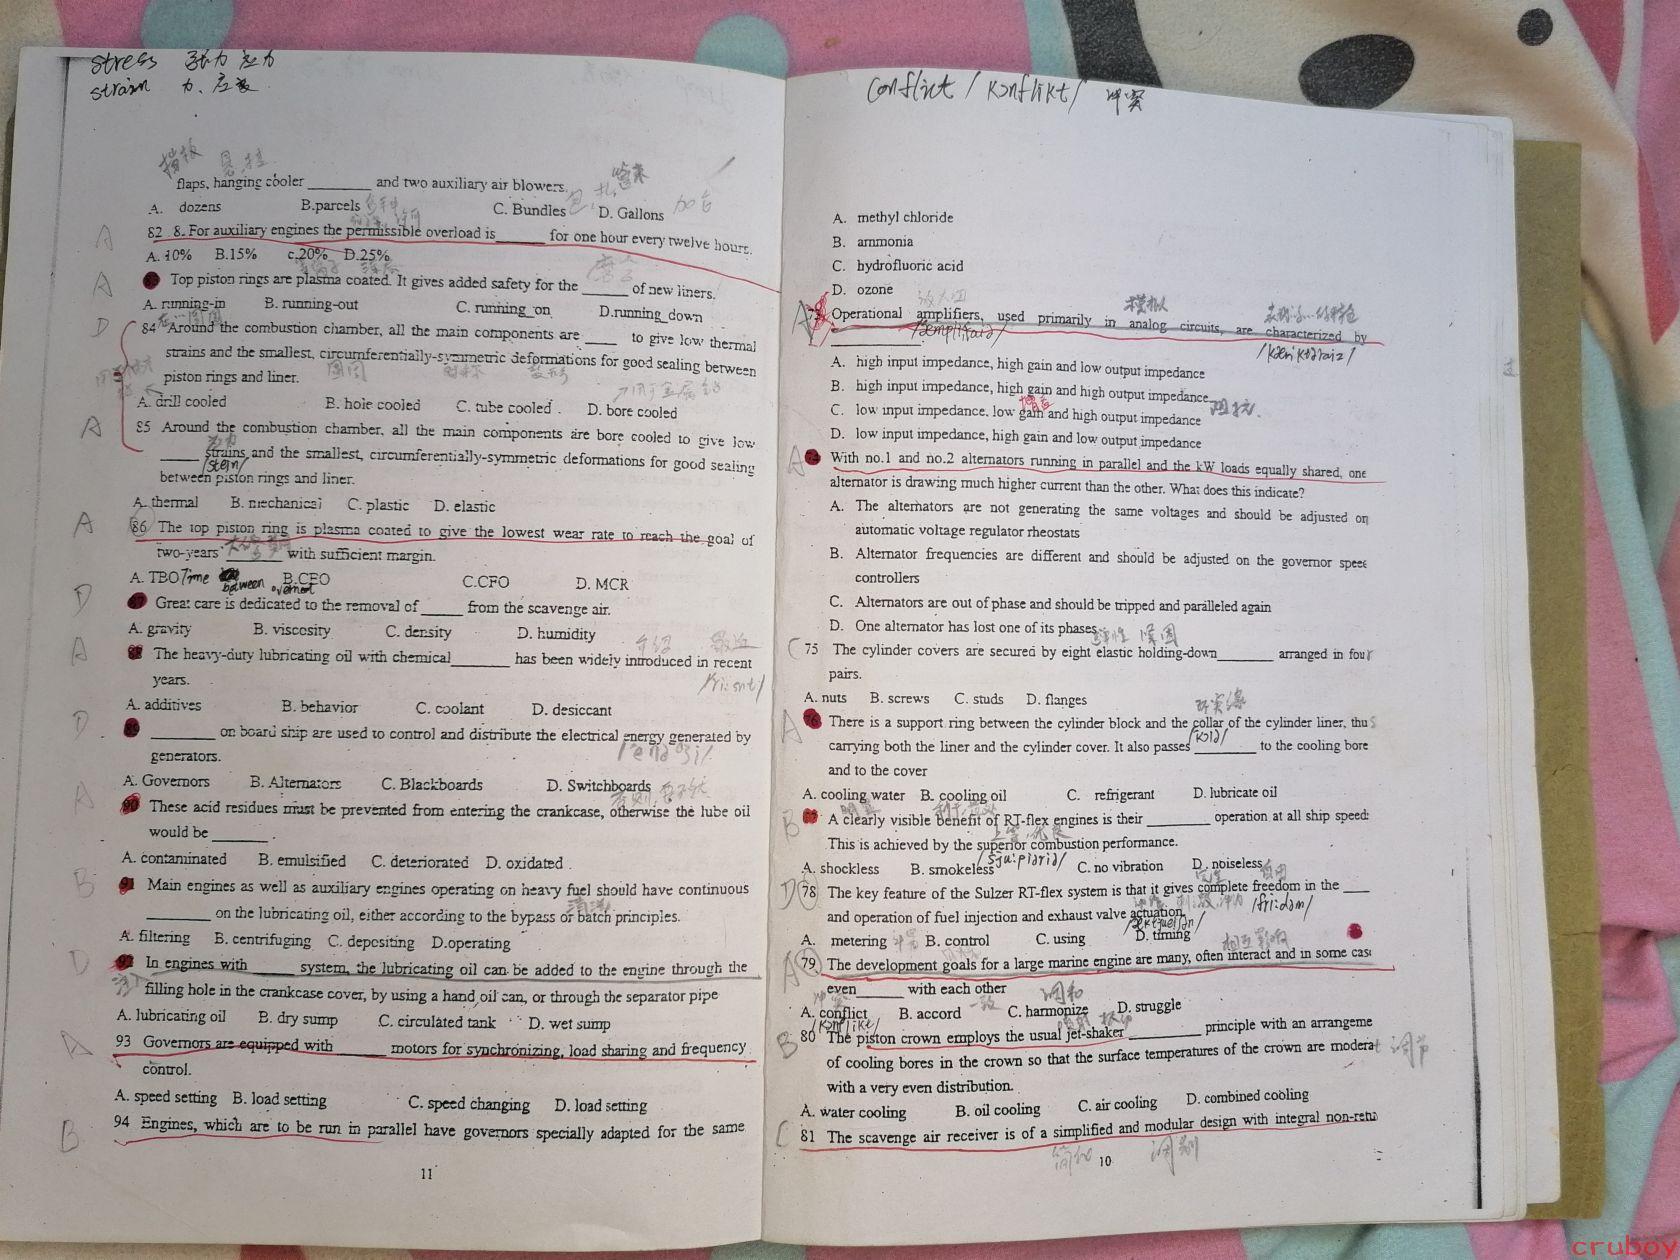 stress 张力 应力
strain 力、应变
flaps, hanging cooler ________ and two auxiliary air blowers.
A. dozens B.parcels C. Bundles D. Gallons
A 82 8. For auxiliary engines the permissible overload is______ for one hour every twelve hours.
A. 10% B.15% c.20% D.25%
A Top piston rings are plasma coated. It gives added safety for the ______ of new liners.
A. running-in B. running-out C. running_on D.running_down
D 84 Around the combustion chamber, all the main components are ____ to give low thermal
strains and the smallest, circumferentially-symmetric deformations for good sealing between
piston rings and liner.
A. drill cooled B. hole cooled C. tube cooled . D. bore cooled
A 85 Around the combustion chamber, all the main components are bore cooled to give low
_____ strains and the smallest, circumferentially-symmetric deformations for good sealing
between piston rings and liner.
A. thermal B. mechanical C. plastic D. elastic
A 86 The top piston ring is plasma coated to give the lowest wear rate to reach the goal of
two-years' ______ with sufficient margin.
A. TBO Time between B.CEO C.CFO D. MCR
D 87 Great care is dedicated to the removal of _____ from the scavenge air.
A. gravity B. viscosity C. density D. humidity
A 88 The heavy-duty lubricating oil with chemical_______ has been widely introduced in recent
years.
A. additives B. behavior C. coolant D. desiccant
D 89 ________ on board ship are used to control and distribute the electrical energy generated by
generators.
A. Governors B. Alternators C. Blackboards D. Switchboards
A 90 These acid residues must be prevented from entering the crankcase, otherwise the lube oil
would be _______ .
A. contaminated B. emulsified C. deteriorated D. oxidated .
B 91 Main engines as well as auxiliary engines operating on heavy fuel should have continuous
________ on the lubricating oil, either according to the bypass or batch principles.
A. filtering B. centrifuging C. depositing D.operating
D 92 In engines with _____ system, the lubricating oil can be added to the engine through the
filling hole in the crankcase cover, by using a hand oil can, or through the separator pipe
A. lubricating oil B. dry sump C. circulated tank D. wet sump
A 93 Governors are equipped with ______ motors for synchronizing, load sharing and frequency
control.
A. speed setting B. load setting C. speed changing D. load setting
B 94 Engines, which are to be run in parallel have governors specially adapted for the same
11
Conflict /kɔnflikt/ 冲突
A. methyl chloride
B. ammonia
C. hydrofluoric acid
D. ozone
A 73 Operational amplifiers, used primarily in analog circuits, are characterized by
________
A. high input impedance, high gain and low output impedance
B. high input impedance, high gain and high output impedance
C. low input impedance, low gain and high output impedance
D. low input impedance, high gain and low output impedance
A 74 With no.1 and no.2 alternators running in parallel and the kW loads equally shared, one
alternator is drawing much higher current than the other. What does this indicate?
A. The alternators are not generating the same voltages and should be adjusted on
automatic voltage regulator rheostats
B. Alternator frequencies are different and should be adjusted on the governor speed
controllers
C. Alternators are out of phase and should be tripped and paralleled again
D. One alternator has lost one of its phases
C 75 The cylinder covers are secured by eight elastic holding-down_______ arranged in four
pairs.
A. nuts B. screws C. studs D. flanges
A 76 There is a support ring between the cylinder block and the collar of the cylinder liner, thus
carrying both the liner and the cylinder cover. It also passes ________ to the cooling bore
and to the cover
A. cooling water B. cooling oil C. refrigerant D. lubricate oil
B 77 A clearly visible benefit of RT-flex engines is their ________ operation at all ship speed:
This is achieved by the superior combustion performance.
A. shockless B. smokeless C. no vibration D. noiseless
D 78 The key feature of the Sulzer RT-flex system is that it gives complete freedom in the ____
and operation of fuel injection and exhaust valve actuation.
A. metering B. control C. using D. timing
A 79 The development goals for a large marine engine are many, often interact and in some case
even______ with each other
A. conflict B. accord C. harmonize D. struggle
B 80 The piston crown employs the usual jet-shaker _________ principle with an arrangeme
of cooling bores in the crown so that the surface temperatures of the crown are moderat
with a very even distribution.
A. water cooling B. oil cooling C. air cooling D. combined cooling
C 81 The scavenge air receiver is of a simplified and modular design with integral non-retu
10
cruboy